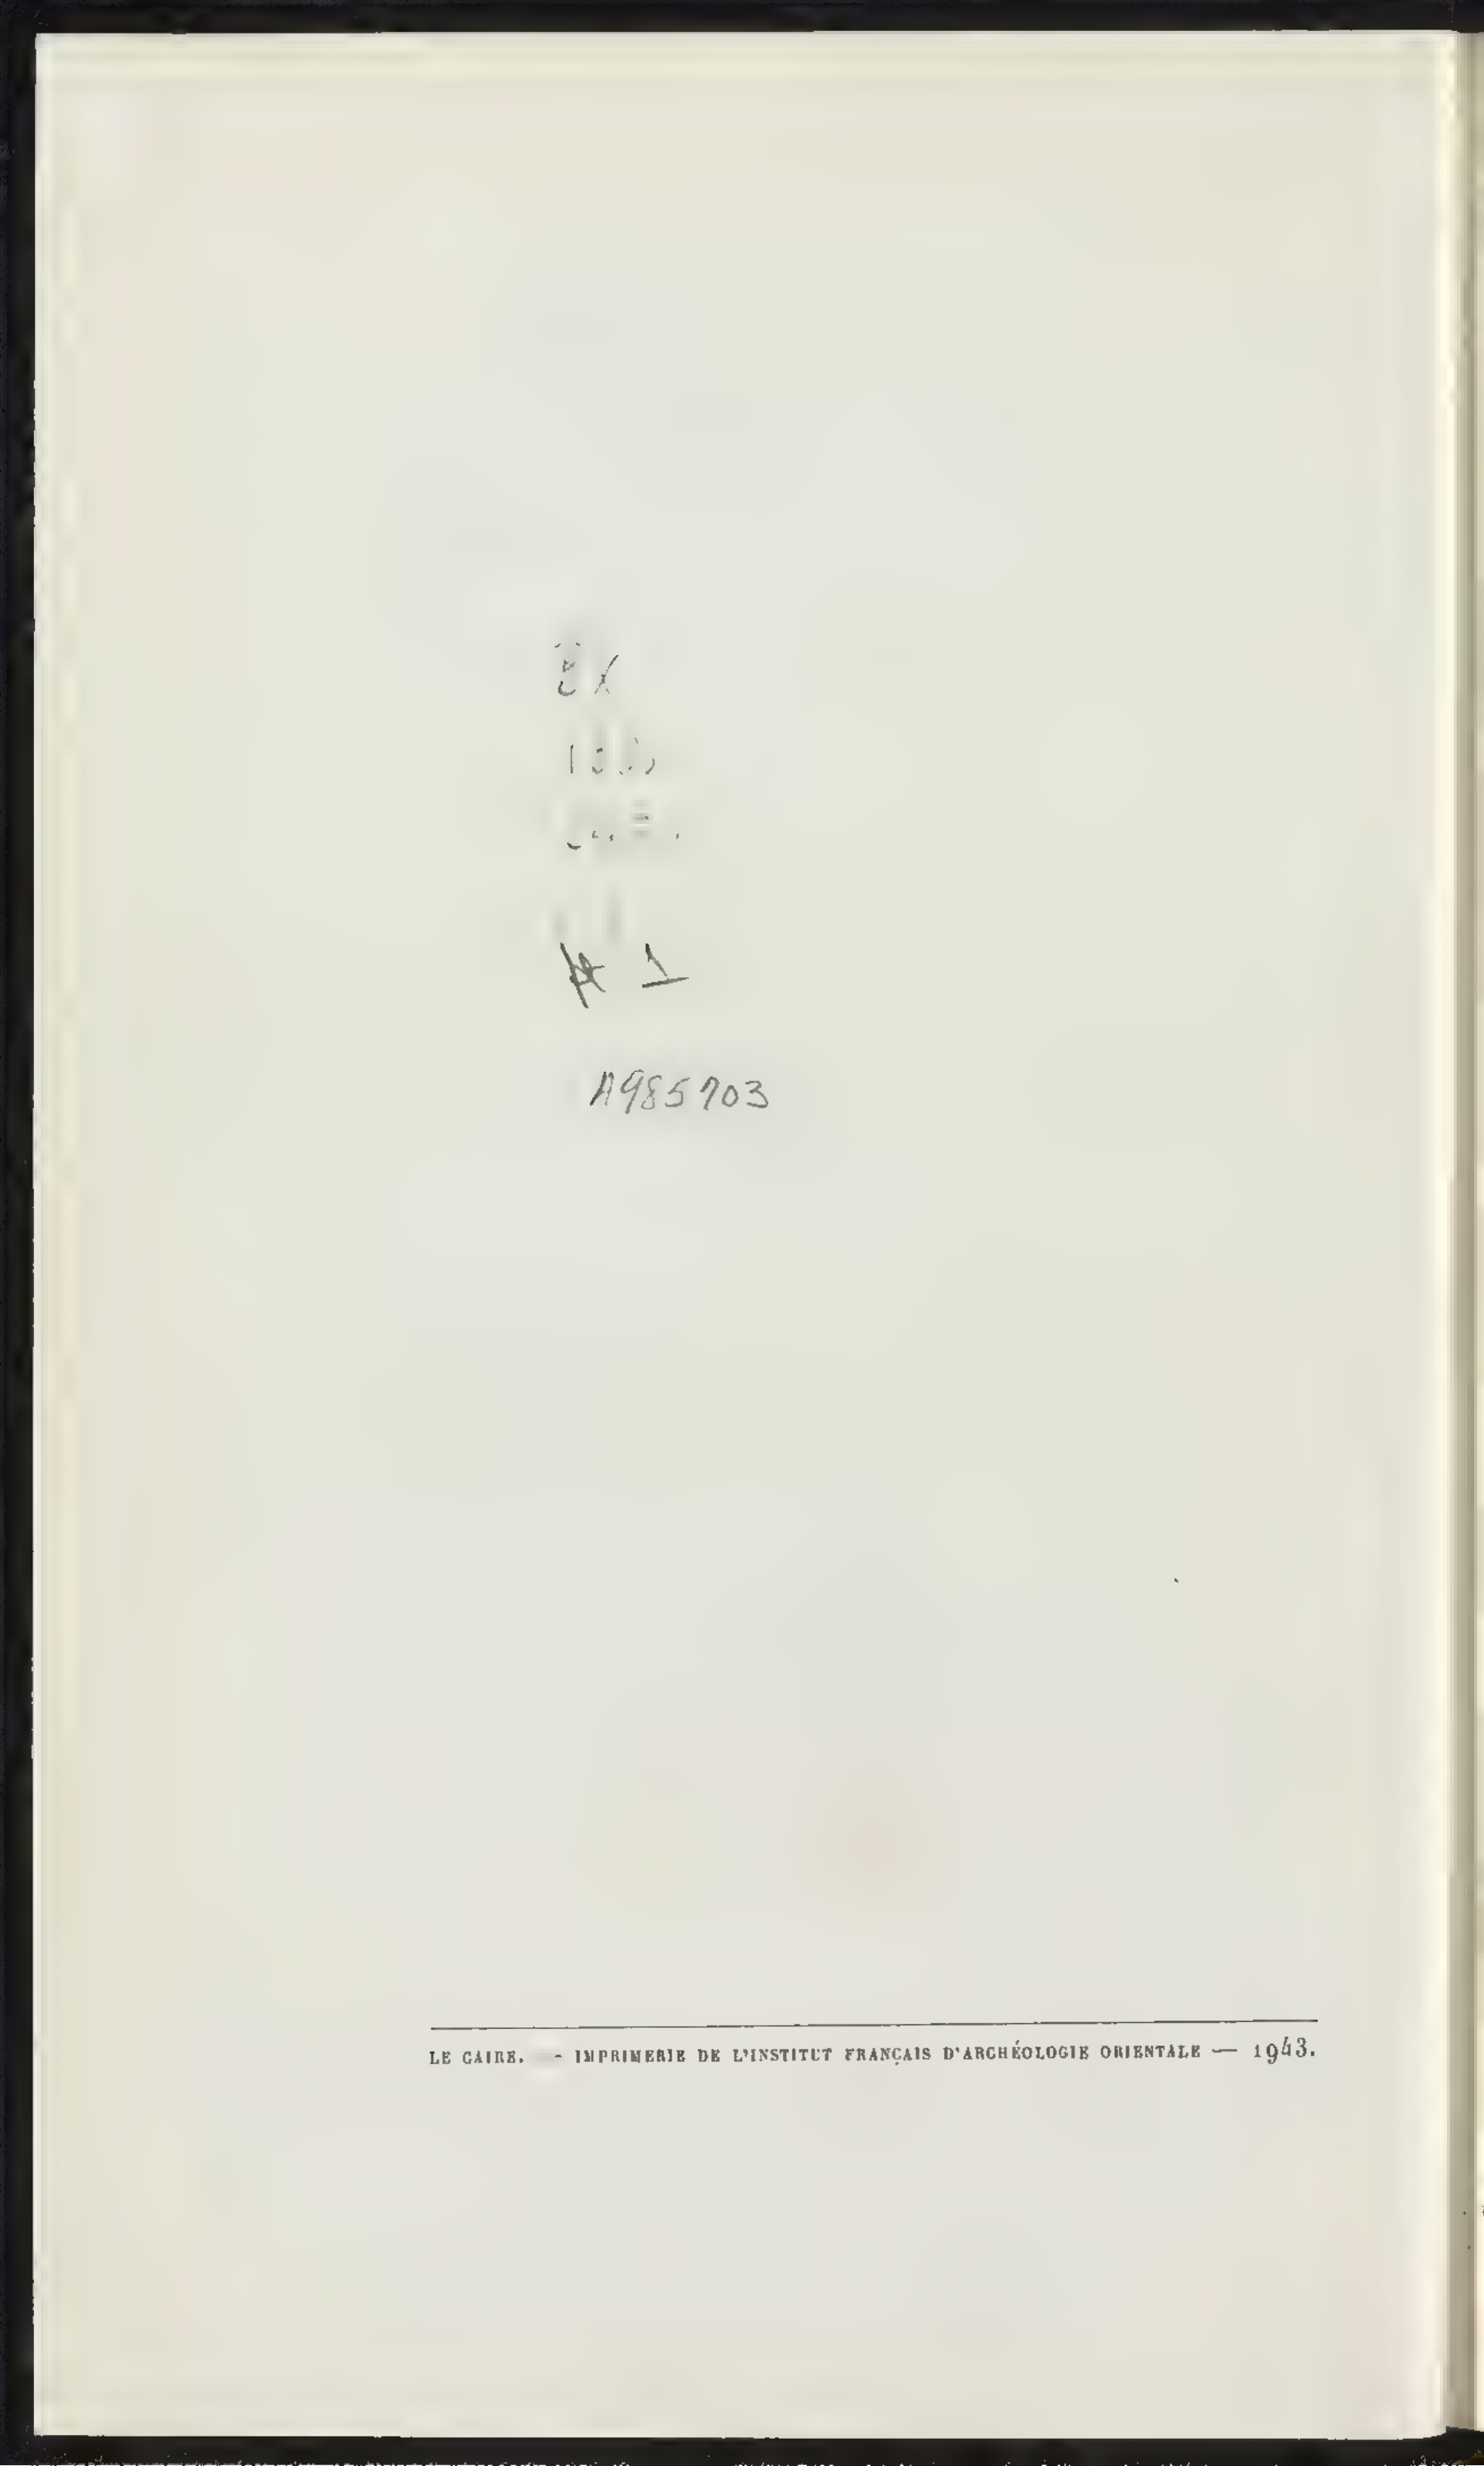 # 1
A985703
LE CAIRE. — IMPRIMERIE DE L'INSTITUT FRANÇAIS D'ARCHÉOLOGIE ORIENTALE — 1943.